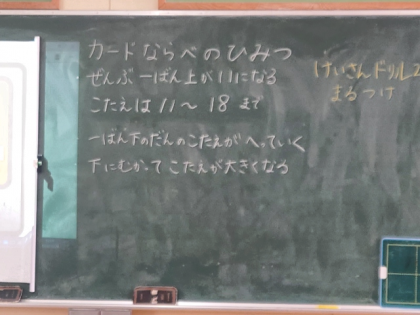 カードならべのひみつ
ぜんぶ一ばん上が11になる
こたえは11～18まで
一ばん下のだんのこたえがへっていく
下にむかってこたえが大きくなる
けいさんドリル2
まるつけ